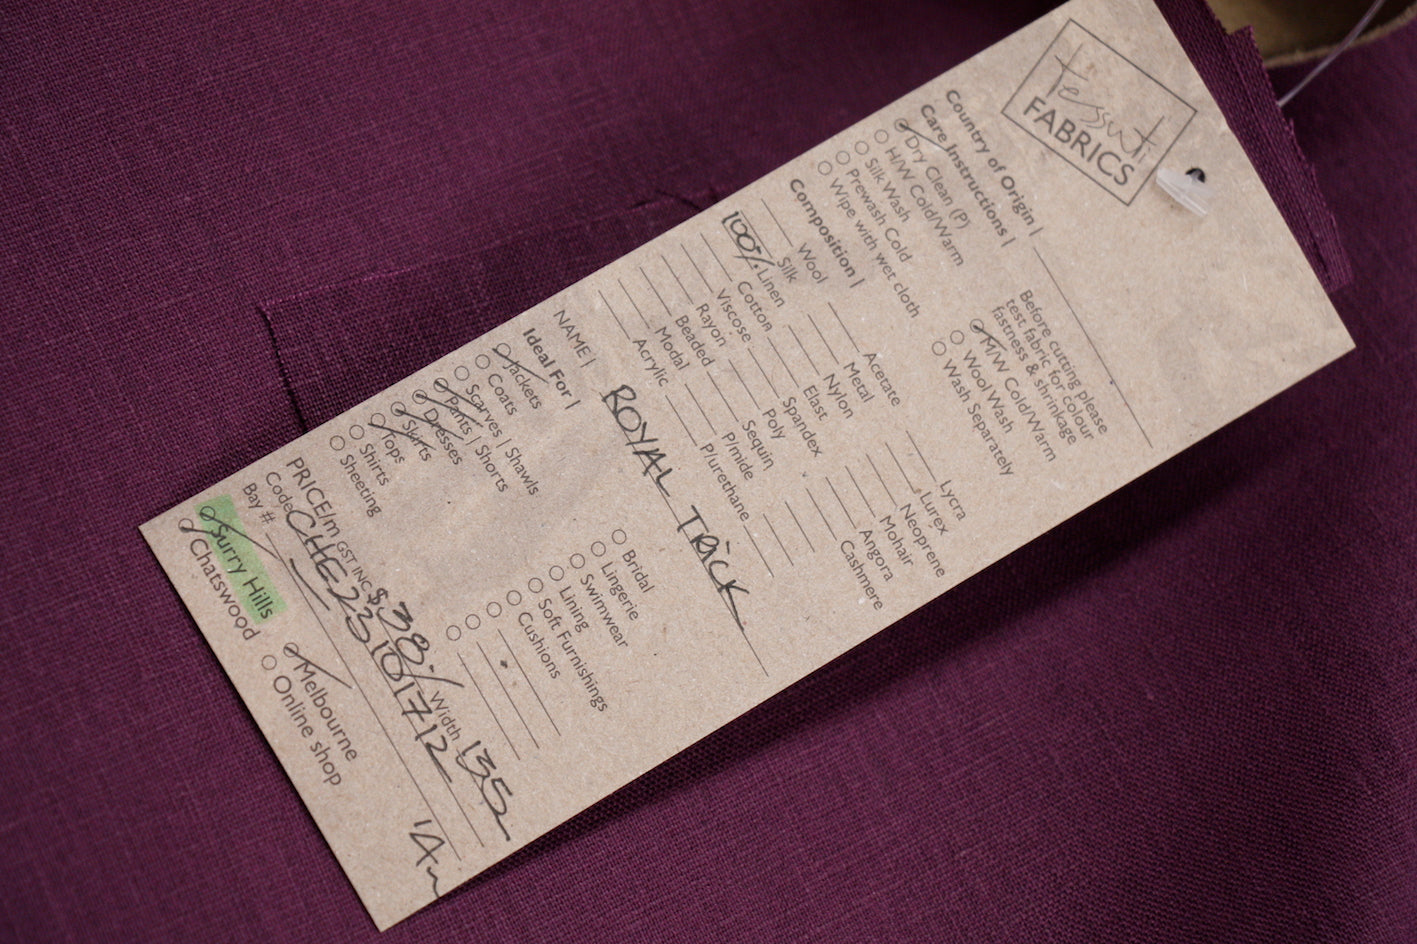 tessuti
FABRICS
Country of Origin |
Care Instructions |
Dry Clean (P)
H/W Cold/Warm
Silk Wash
Prewash Cold
Wipe with wet cloth
Before cutting please
test fabric for colour
fastness & shrinkage
M/W Cold/Warm
Wool Wash
Wash Separately
Composition |
Wool Acetate Lycra
Silk Metal Lurex
100% Linen Nylon Neoprene
Cotton Elast Mohair
Viscose Spandex Angora
Rayon Poly Cashmere
Beaded Sequin
Modal P/mide
Acrylic P/urethane
NAME | ROYAL TRICK
Ideal For |
Jackets Bridal
Coats Lingerie
Scarves | Shawls Swimwear
Pants | Shorts Lining
Dresses Soft Furnishings
Skirts Cushions
Tops
Shirts
Sheeting
PRICE/m GST INC $38 Width 135
Code CHE23101712
Bay #
Surry Hills Melbourne
Chatswood Online shop